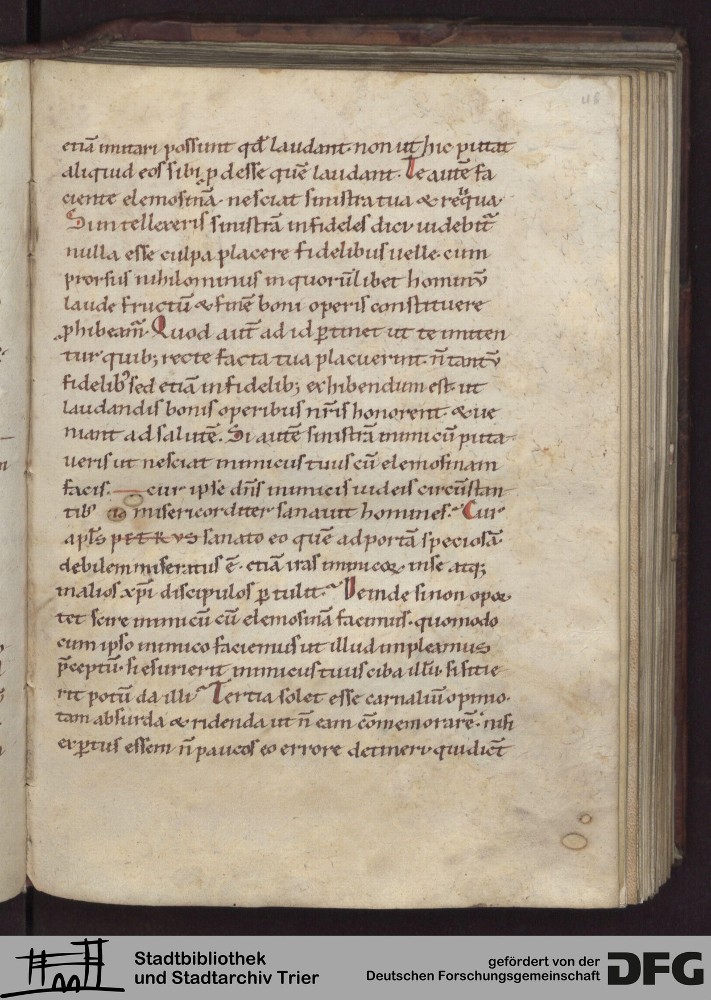 48
etiā imitari possunt qđ laudant· non ut hic putat
aliquid eos sibi ꝓdesse quē laudant· Te autē fa
ciente elemosinā· nesciat sinistra tua & reliqua·
Si intellexeris sinistrā infideles dici uidebit̄
nulla esse culpa placere fidelibus uelle· cum
prorsus nihilominus in quorūlibet hominū
laude fructū & finē boni operis constituere
ꝓhibeam̄· Quod aut̄ ad id ꝑtinet ut te imiten
tur quib; recte facta tua placuerint· n̄ tantū
fidelib' sed etiā infidelib; exhibendum est· ut
laudandis bonis operibus nr̄is honorent· & ue
niant ad salutē. Si autē sinistrā inimicū puta
ueris ut nesciat inimicus tuus cū elemosinam
facis· cur ipse dn̄s inimicis iudeis circūstan
tib' misericorditer sanauit homines· Cur
apl̄s PETRVS sanato eo quē ad portā speciosā
debilem miseratus ē· etiā iras inimicoꝝ in se atq;
in alios xp̄i discipulos ꝑtulit· Deinde si non opor
tet scire inimicū cū elemosinam facimus· quomodo
cum ipso inimico faciemus ut illud impleamus
p̄ceptū· si esurierit inimicus tuus ciba illū· si sitie
rit potū da illi· Tertia solet esse carnaliū opinio·
tam absurda & ridenda ut n̄ eam cōmemorarē· nisi
exꝑtus essem n̄ paucos eo errore detineri· qui dict̄
Stadtbibliothek
und Stadtarchiv Trier
gefördert von der
Deutschen Forschungsgemeinschaft
DFG